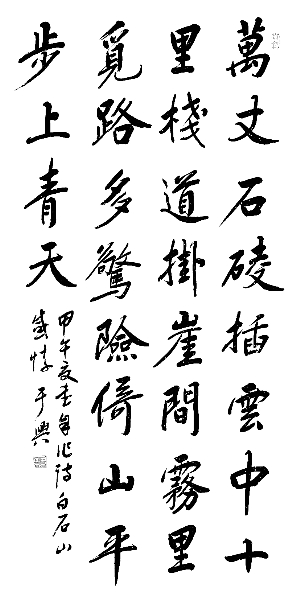 萬丈石碐插雲中十
里棧道掛崖間霧里
覓路多驚險倚山平
步上青天
甲午夏自作詩白石山
感悟于興